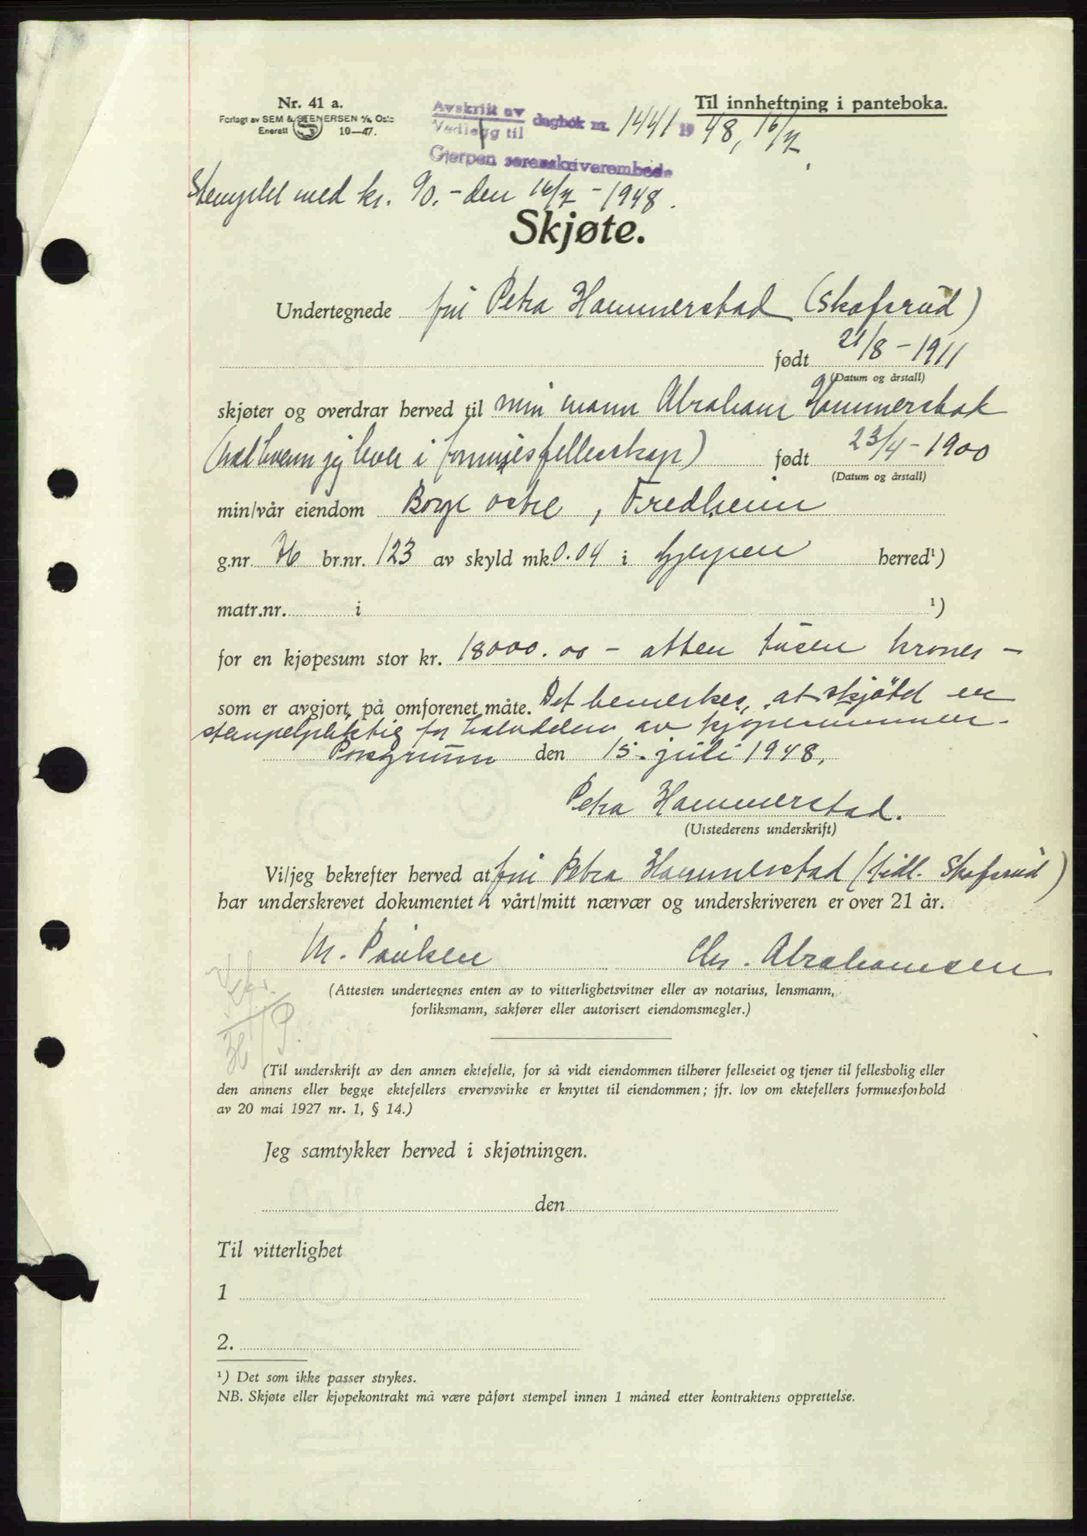 Nr. 41 a.
Forlagt av SEM & STENERSEN A/S, Oslo
Enerett 10—47.
Til innheftning i panteboka.
Avskrift av
Vedlegg til dagbok nr. 1441 1948, 16/7.
Gjerpen sorenskriverembede
Stemplet med kr. 90.- den 16/7 - 1948.
Skjøte.
Undertegnede fru Petra Hammerstad (Skafsrud)
født 21/8 - 1911
(Datum og årstall)
skjøter og overdrar herved til min mann Abraham Hammerstad
(med hvem jeg lever i formuesfellesskap) født 23/4 - 1900
(Datum og årstall)
min/vår eiendom Borge østre, Fredheim
g.nr. br.nr. 123 av skyld mk. 0.04 i Gjerpen herred¹)
matr.nr. i ¹)
for en kjøpesum stor kr. 18000.00 - atten tusen kroner -
som er avgjort på omforenet måte. Det bemerkes, at skjøtet er
stempelpliktig for halvdelen av kjøpesummen.
Porsgrunn den 15. juli 1948.
Petra Hammerstad.
(Utstederens underskrift)
Vi/jeg bekrefter herved at fru Petra Hammerstad (tidl. Skafsrud)
har underskrevet dokumentet i vårt/mitt nærvær og underskriveren er over 21 år.
M. Paulsen Chr. Abrahamsen
(Attesten undertegnes enten av to vitterlighetsvitner eller av notarius, lensmann,
forliksmann, sakfører eller autorisert eiendomsmegler.)
(Til underskrift av den annen ektefelle, for så vidt eiendommen tilhører felleseiet og tjener til fellesbolig eller
den annens eller begge ektefellers ervervsvirke er knyttet til eiendommen; jfr. lov om ektefellers formuesforhold
av 20 mai 1927 nr. 1, § 14.)
Jeg samtykker herved i skjøtningen.
den
Til vitterlighet
1
2.
¹) Det som ikke passer strykes.
NB. Skjøte eller kjøpekontrakt må være påført stempel innen 1 måned etter kontraktens opprettelse.